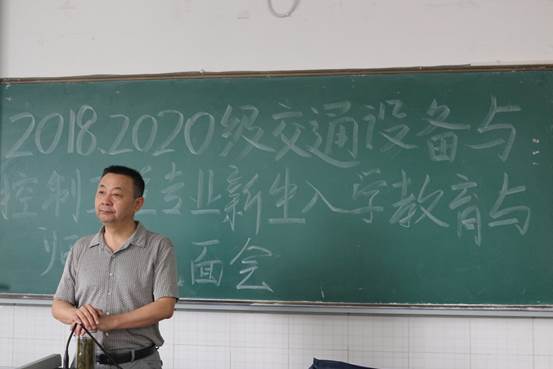 2018.2020级交通设备与
控制工程专业新生入学教育与
师生见面会